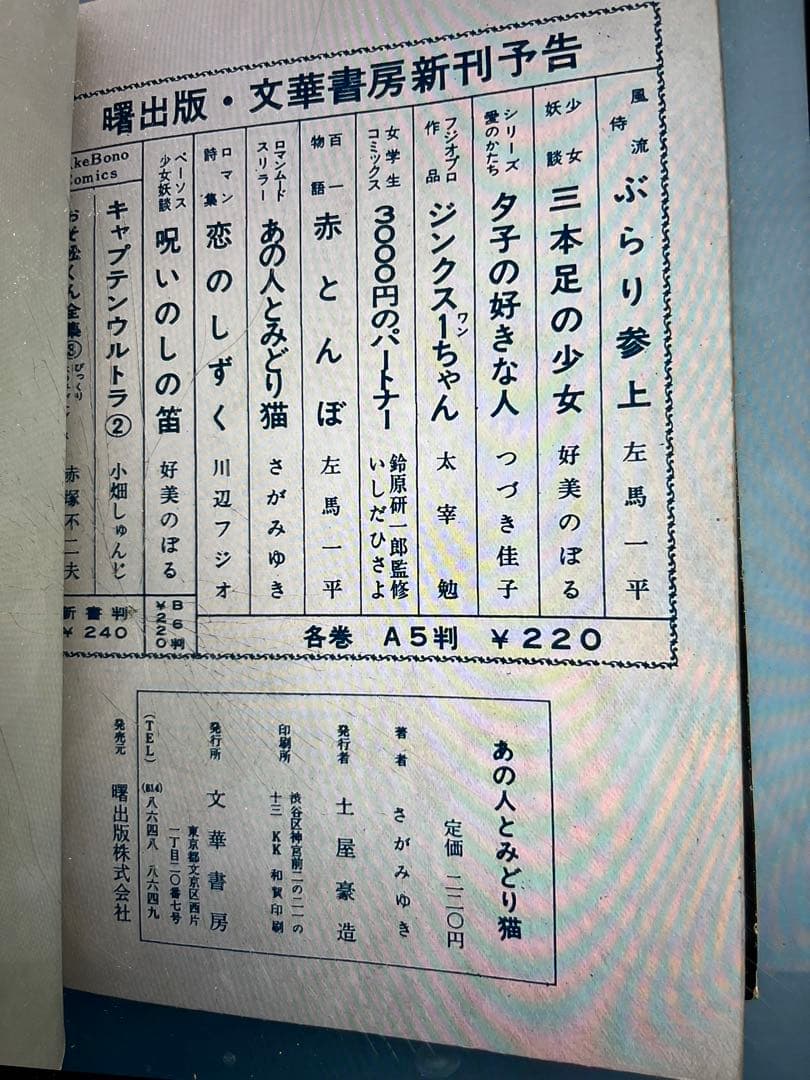 曙出版・文華書房新刊予告
風流侍 ぶらり参上 左馬一平
少女妖談 三本足の少女 好美のぼる
シリーズ愛のかたち 夕子の好きな人 つづき佳子
フジオプロ作品 ジンクス一ちゃん 太宰勉
ワン
女学生コミックス 3000円のパートナー 鈴原研一郎監修 いしだひさよ
百一物語 赤とんぼ 左馬一平
ロマンムードスリラー あの人とみどり猫 さがみゆき
ロマン詩集 恋のしずく 川辺フジオ
ペーソス少女妖談 呪いのしの笛 好美のぼる
keBono Comics
キャプテンウルトラ② 小畑しゅんじ
おそ松くん全集⑧ びっくり 赤塚不二夫
各巻 A5判 ¥220
B6判 ¥220
新書判 ¥240
あの人とみどり猫
定価 二二〇円
著者 さがみゆき
発行者 土屋豪造
印刷所 渋谷区神宮前二の二一の
十三 KK 和賀印刷
発行所 文華書房
東京都文京区西片
一丁目二〇番七号
(TEL) (814)八六四八 八六四九
発売元 曙出版株式会社